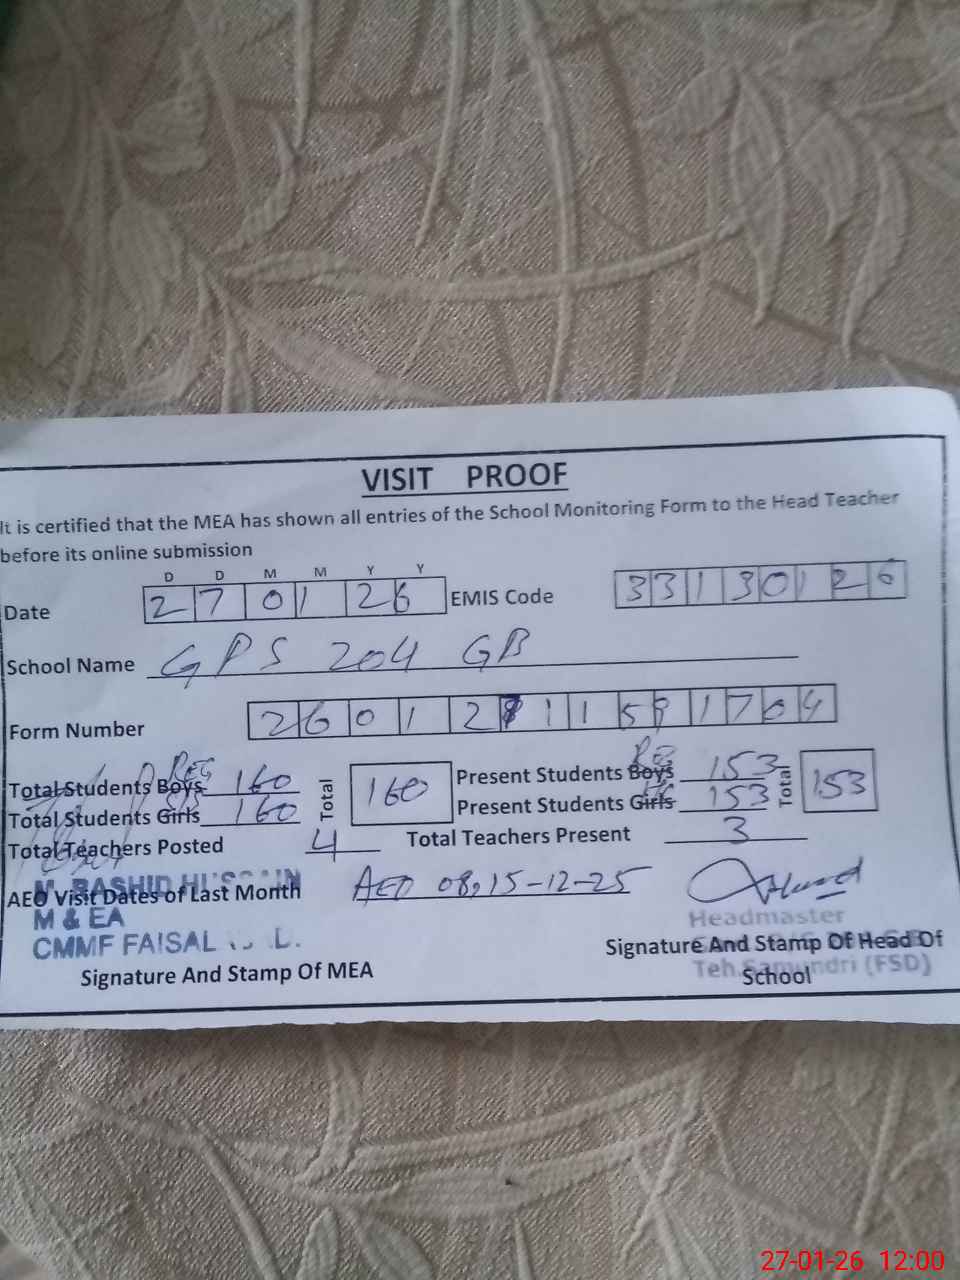 VISIT PROOF
It is certified that the MEA has shown all entries of the School Monitoring Form to the Head Teacher
before its online submission
D D M M Y Y
Date 27 01 26 EMIS Code 33130126
School Name GPS 204 GB
Form Number
Total Students Boys REG 160 Total 160 Present Students Boys REG 153 Total 153
Total Students Girls 160 Present Students Girls HC 153
Total Teachers Posted 4 Total Teachers Present 3
AEO Visit Dates of Last Month AEO 08,15-12-25
M. RASHID HUSSAIN
M & EA
CMMF FAISAL
Signature And Stamp Of MEA
Headmaster
Signature And Stamp Of Head Of
School
Teh.Samundri (FSD)
27-01-26 12:00